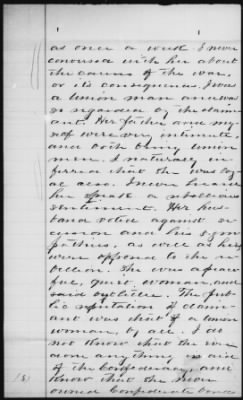 as once a week. I never
conversed with her about
the causes of the war,
or its consequences. I was
a Union man and was
so regarded by the claim-
ant. Her father and my-
self were very intimate
and both being Union
men. I naturally in-
ferred that she was loy-
al also. I never heard
her speak a rebellious
sentiment. Her hus-
band voted against se-
cession and his sym-
pathies, as well as hers
were opposed to the re-
bellion. She was a peace-
ful, quiet woman, and
said but little. The pub-
lic reputation of claim-
ant was that of a Union
woman, by all. I do
not know that she ever
done anything in aid
of the Confederacy, and
know that she never
owned Confederate bonds
(8)